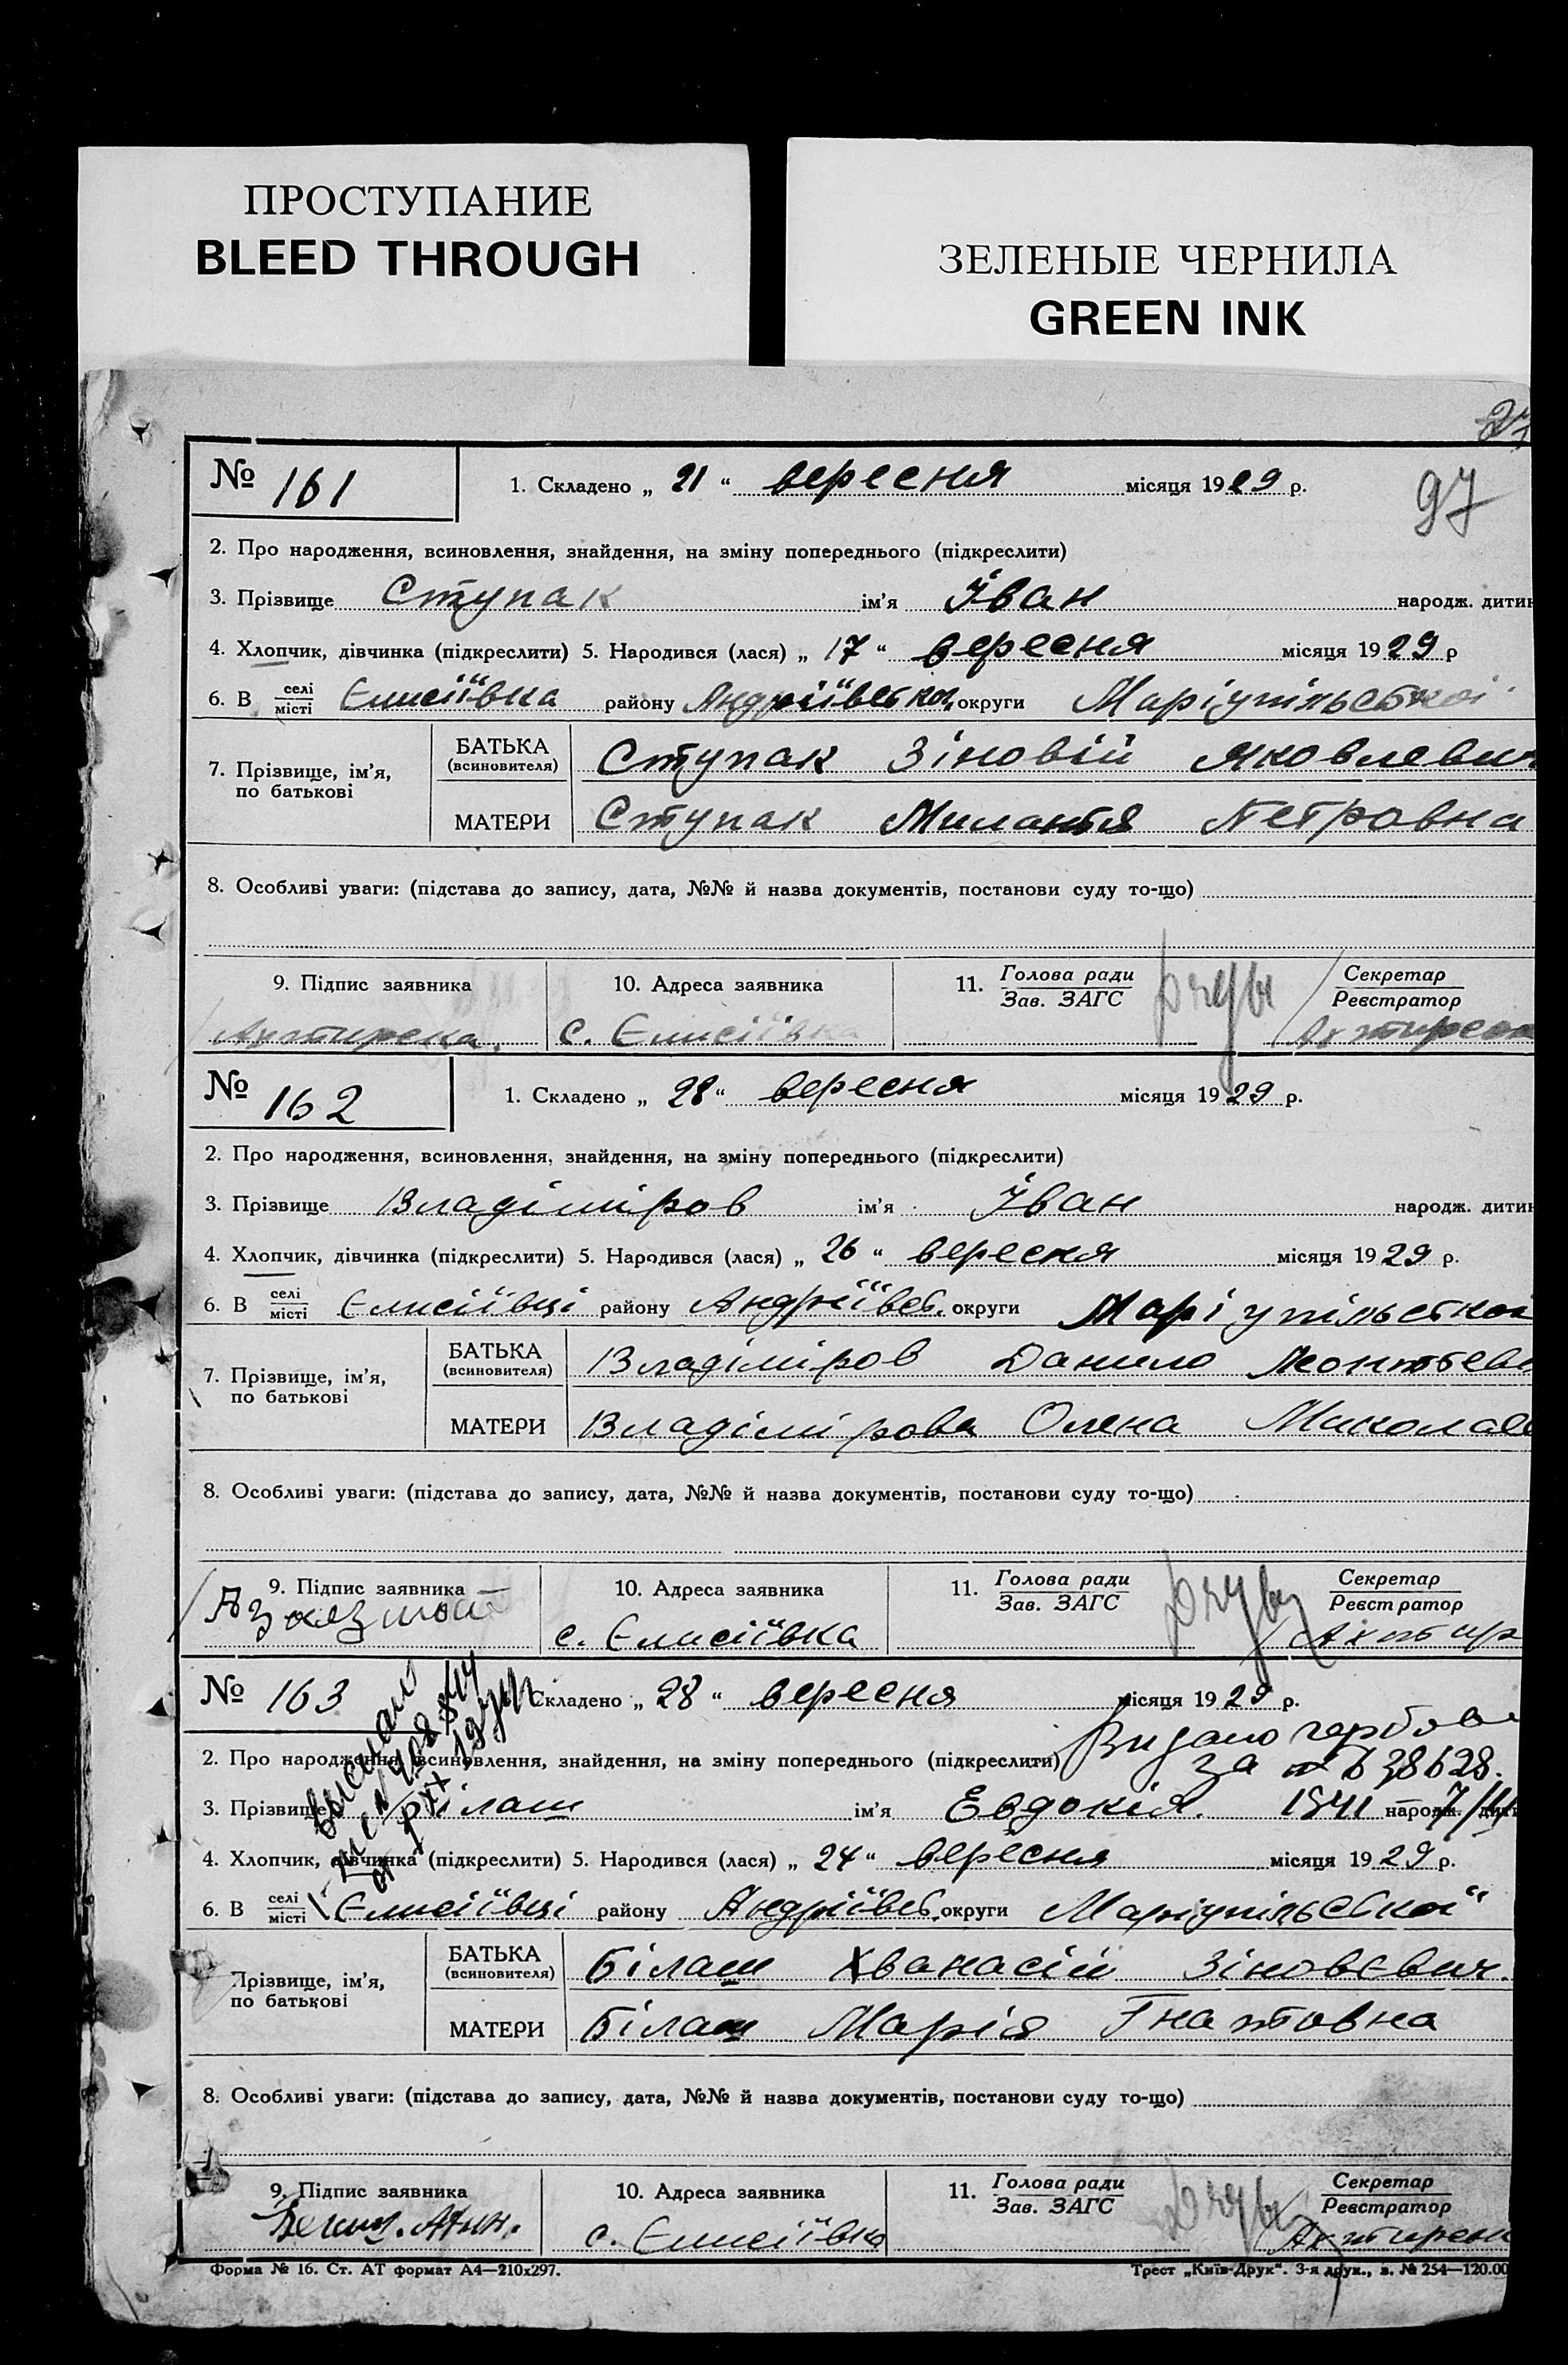 ПРОСТУПАНИЕ
BLEED THROUGH
ЗЕЛЕНЫЕ ЧЕРНИЛА
GREEN INK
97
№ 161
1. Складено „ 21 “ вересня місяця 1929 р.
2. Про народження, всиновлення, знайдення, на зміну попереднього (підкреслити)
3. Прізвище Ступак ім'я Іван народж. дитин
4. Хлопчик, дівчинка (підкреслити) 5. Народився (лася) „ 17 “ вересня місяця 1929 р
6. В селі/місті Єлисіївка району Андріївської округи Маріупільської
7. Прізвище, ім'я, по батькові
БАТЬКА (всиновителя) Ступак Зіновій Яковлевич
МАТЕРИ Ступак Милантя Петровна
8. Особливі уваги: (підстава до запису, дата, №№ й назва документів, постанови суду то-що)
9. Підпис заявника
10. Адреса заявника
11. Голова ради / Зав. ЗАГС
Секретар / Реєстратор
с. Єлисіївка
№ 162
1. Складено „ 28 “ вересня місяця 1929 р.
2. Про народження, всиновлення, знайдення, на зміну попереднього (підкреслити)
3. Прізвище Владіміров ім'я Іван народж. дитин
4. Хлопчик, дівчинка (підкреслити) 5. Народився (лася) „ 26 “ вересня місяця 1929 р.
6. В селі/місті Єлисіївці району Андріївсь. округи Маріупільської
7. Прізвище, ім'я, по батькові
БАТЬКА (всиновителя) Владіміров Данило Леонтьеви
МАТЕРИ Владімірова Олена Миколаев
8. Особливі уваги: (підстава до запису, дата, №№ й назва документів, постанови суду то-що)
9. Підпис заявника
10. Адреса заявника
11. Голова ради / Зав. ЗАГС
Секретар / Реєстратор
с. Єлисіївка Ахтир
№ 163
Складено „ 28 “ вересня місяця 1929 р.
Видано гербове
2. Про народження, всиновлення, знайдення, на зміну попереднього (підкреслити)
за 638628.
3. Прізвище Білаш ім'я Евдокія. 1941 народж. дити
4. Хлопчик, дівчинка (підкреслити) 5. Народився (лася) „ 24 “ вересня місяця 1929 р.
6. В селі/місті Єлисіївці району Андріївсь. округи Маріупільської
Прізвище, ім'я, по батькові
БАТЬКА (всиновителя) Білаш Хванасій Зіновєвич.
МАТЕРИ Білаш Марія Гнатовна
8. Особливі уваги: (підстава до запису, дата, №№ й назва документів, постанови суду то-що)
9. Підпис заявника
10. Адреса заявника
11. Голова ради / Зав. ЗАГС
Секретар / Реєстратор
с. Єлисіївка
Форма № 16. Ст. АТ формат А4—210х297.
Трест „Київ-Друк“. 3-я друк., з. № 254—120.00